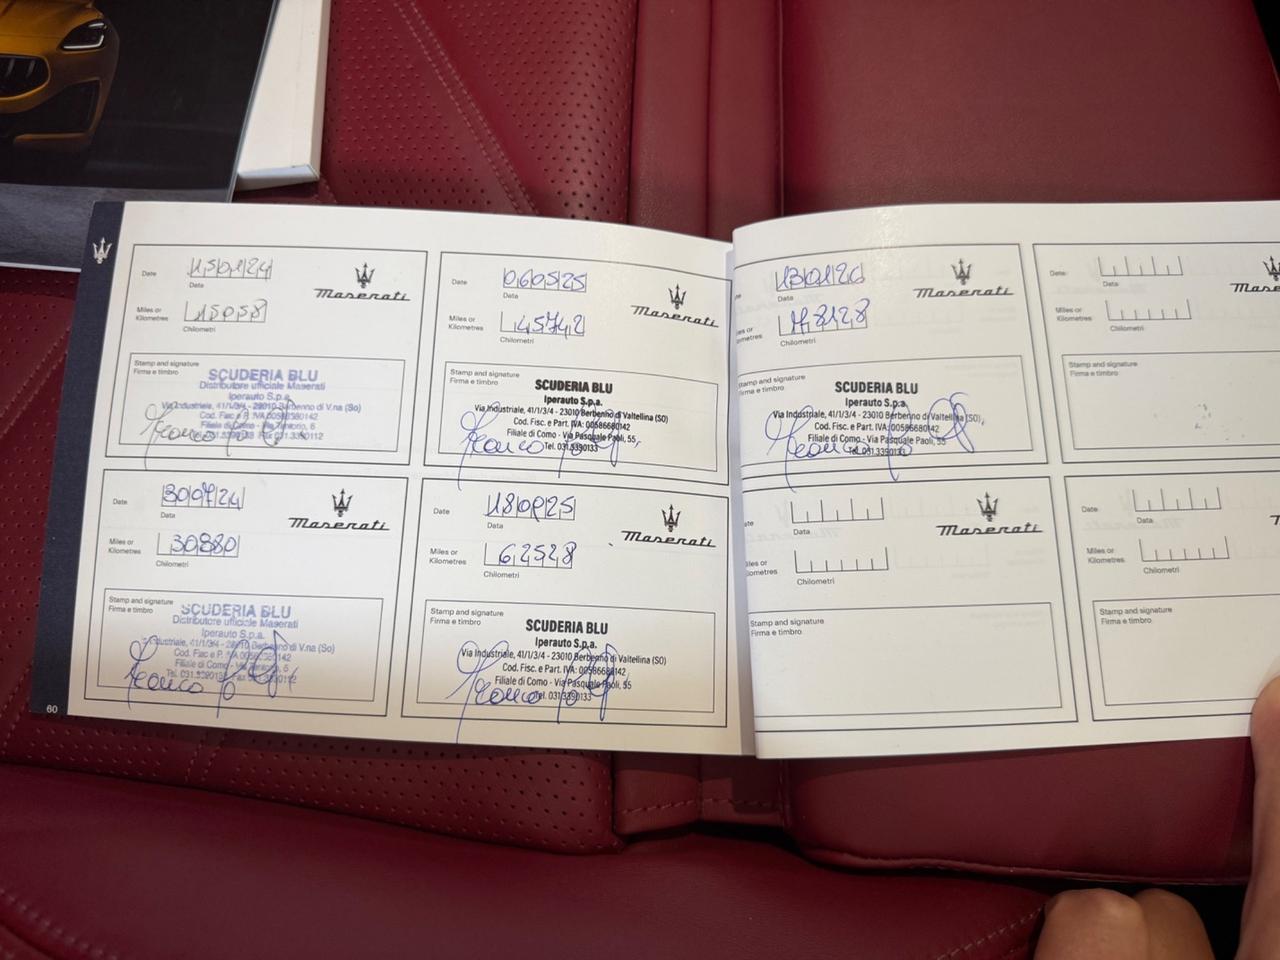 Date
15 01 24
Data
Maserati
Miles or
Kilometres
15058
Chilometri
Stamp and signature
Firma e timbro
SCUDERIA BLU
Distributore ufficiale Maserati
Iperauto S.p.a.
Via Industriale, 41/1/3/4 - 23010 Berbenno di V.na (So)
Cod. Fisc e P. IVA 00586680142
Filiale di Como - Via
Tel. 031.3390133 Fax 031.3390112
Date
30 07 24
Data
Maserati
Miles or
Kilometres
30880
Chilometri
Stamp and signature
Firma e timbro
SCUDERIA BLU
Distributore ufficiale Maserati
Iperauto S.p.a.
Industriale, 41/1/3/4 - 23010 Berbenno di V.na (So)
Cod. Fisc. e P. IVA 00586680142
Filiale di Como - Via
Tel. 031.3390133
60
Date
06 05 25
Data
Maserati
Miles or
Kilometres
45742
Chilometri
Stamp and signature
Firma e timbro
SCUDERIA BLU
Iperauto S.p.a.
Via Industriale, 41/1/3/4 - 23010 Berbenno di Valtellina (SO)
Cod. Fisc. e Part. IVA: 00586680142
Filiale di Como - Via Pasquale Paoli, 55
Tel. 031.3390133
Date
25
Data
Maserati
Miles or
Kilometres
62528
Chilometri
Stamp and signature
Firma e timbro
SCUDERIA BLU
Iperauto S.p.a.
Via Industriale, 41/1/3/4 - 23010 Berbenno di Valtellina (SO)
Cod. Fisc. e Part. IVA: 00586680142
Filiale di Como - Via Pasquale Paoli, 55
Tel. 031.3390133
13 01 26
Data
Maserati
78128
Chilometri
Stamp and signature
Firma e timbro
SCUDERIA BLU
Iperauto S.p.a.
Via Industriale, 41/1/3/4 - 23010 Berbenno di Valtellina (SO)
Cod. Fisc. e Part. IVA: 00586680142
Filiale di Como - Via Pasquale Paoli, 55
Tel. 031.3390133
Data
Maserati
Chilometri
Stamp and signature
Firma e timbro
Date
Data
Mase
Miles or
Kilometres
Chilometri
Stamp and signature
Firma e timbro
Date
Data
Miles or
Kilometres
Chilometri
Stamp and signature
Firma e timbro